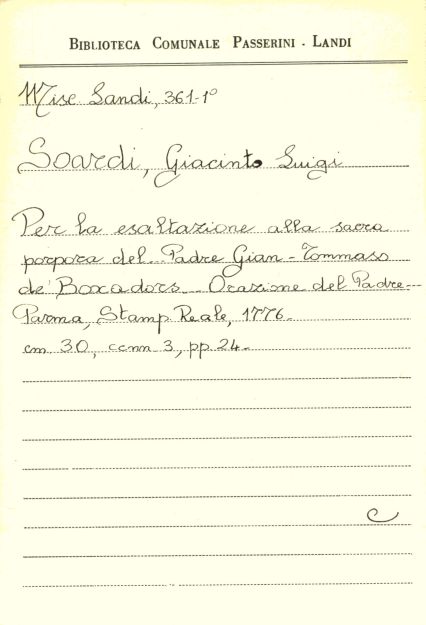 BIBLIOTECA COMUNALE PASSERINI - LANDI
Misc Landi, 361-1º
Soardi, Giacinto Luigi
Per la esaltazione alla sacra
porpora del.. Padre Gian-Tommaso
de' Boxadors... Orazione del Padre...
Parma, Stamp Reale, 1776.
cm 30, ccnn 3, pp 24.
C